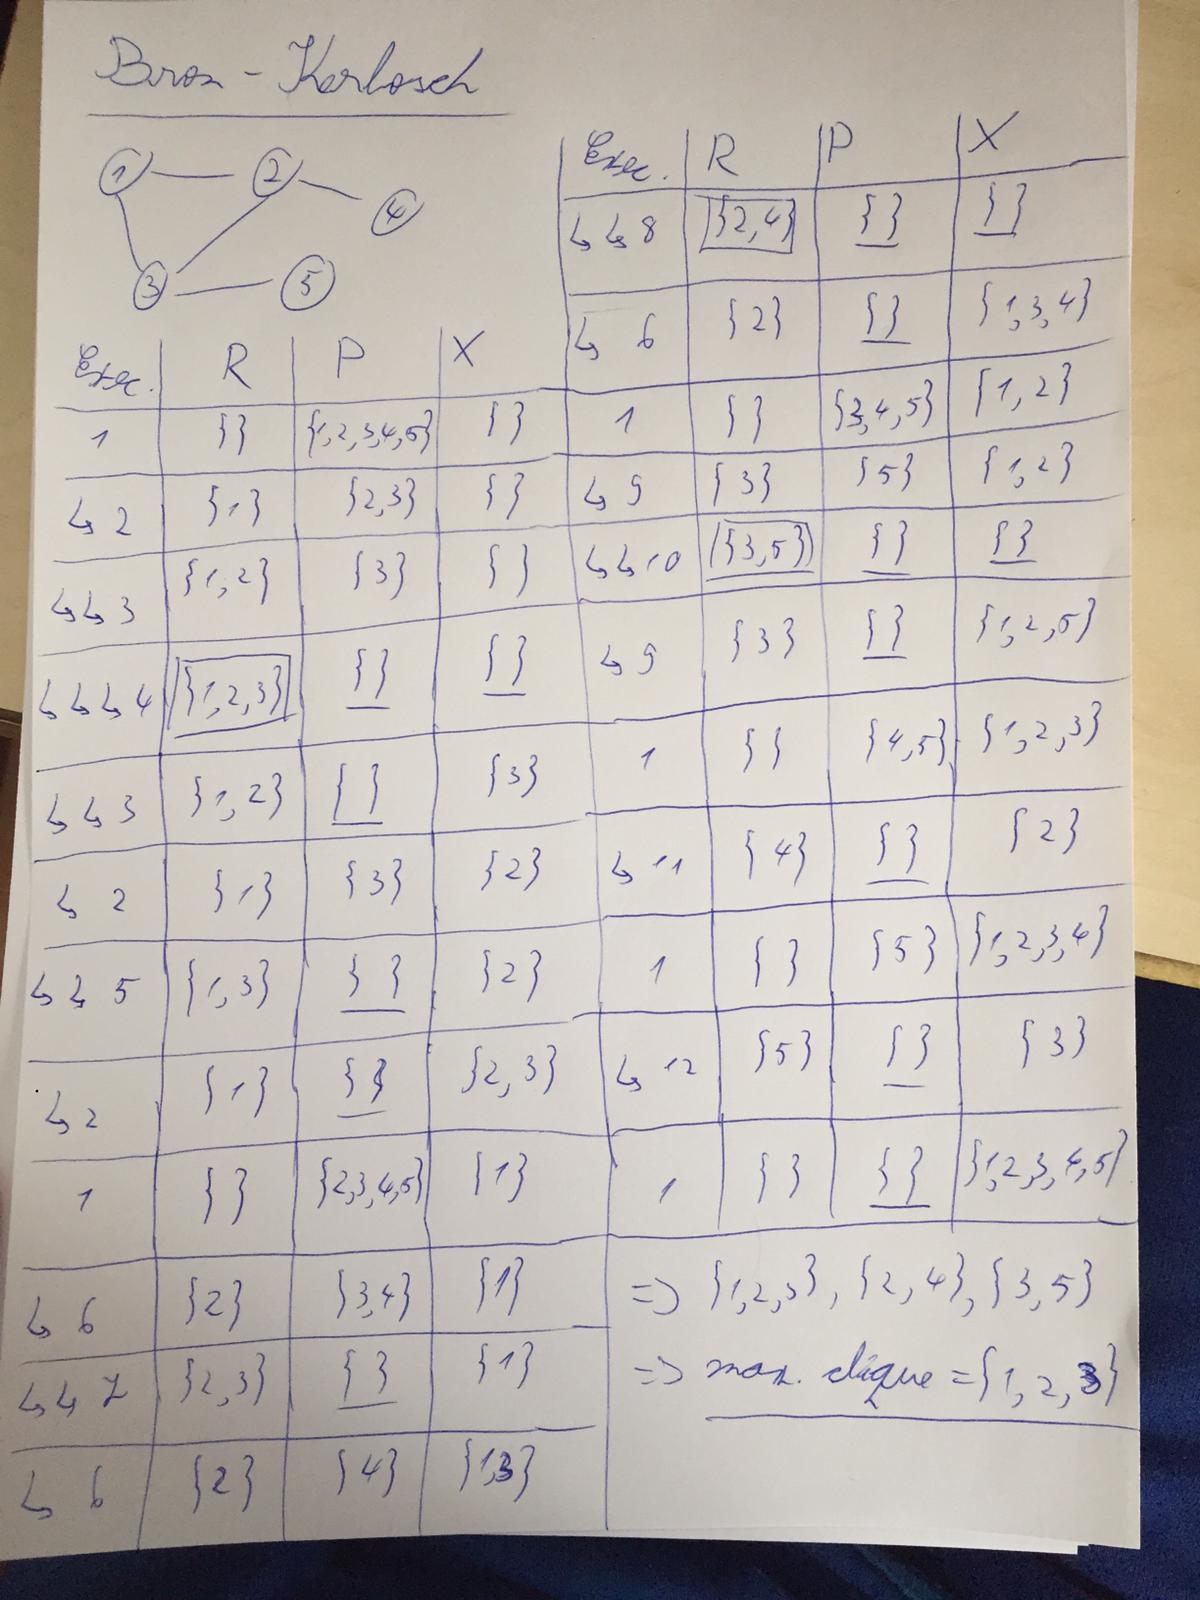 Bron - Kerbosch
1 2 4
3 5
Exec. R P X
1 {} {1,2,3,4,5} {}
↳ 2 {1} {2,3} {}
↳↳ 3 {1,2} {3} {}
↳↳↳ 4 {1,2,3} {} {}
↳↳ 3 {1,2} {} {3}
↳ 2 {1} {3} {2}
↳↳ 5 {1,3} {} {2}
↳ 2 {1} {} {2,3}
1 {} {2,3,4,5} {1}
↳ 6 {2} {3,4} {1}
↳↳ 7 {2,3} {} {1}
↳ 6 {2} {4} {1,3}
Exec. R P X
↳↳ 8 {2,4} {} {}
↳ 6 {2} {} {1,3,4}
1 {} {3,4,5} {1,2}
↳ 9 {3} {5} {1,2}
↳↳ 10 {3,5} {} {}
↳ 9 {3} {} {1,2,5}
1 {} {4,5} {1,2,3}
↳ 11 {4} {} {2}
1 {} {5} {1,2,3,4}
↳ 12 {5} {} {3}
1 {} {} {1,2,3,4,5}
=> {1,2,3}, {2,4}, {3,5}
=> max. clique = {1,2,3}